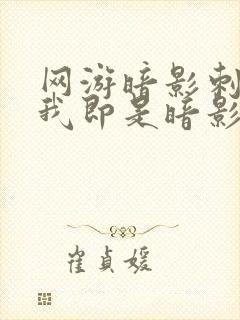 网游暗影刺
我即是暗影
崔貞媛